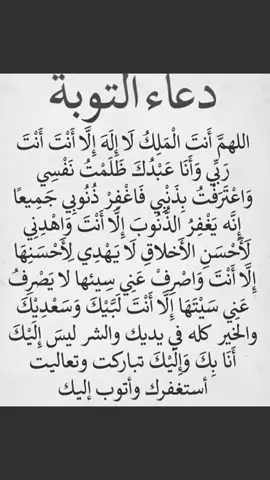 دعاء التوبة
اللهمَّ أَنتَ الْمَلِكُ لَا إِلَهَ إِلَّا أَنْتَ أَنْتَ
رَبِّي وَأَنَا عَبْدُكَ ظَلَمْتُ نَفْسِي
وَاعْتَرَفْتُ بِذَنْبِي فَاغْفِرْ ذُنُوبِي جَمِيعًا
إِنَّه يَغْفِرُ الذُّنُوبَ إِلَّا أَنْتَ وَاهْدِنِي
لِأَحْسَنِ الأَخلاقِ لَا يَهْدِي لِأَحْسَنِهَا
إِلَّا أَنْتَ وَاصْرِفْ عَنِي سِيئها لا يَصْرِفُ
عَنِي سَيْئَهَا إِلَّا أَنْتَ لَبَّيْكَ وَسَعْدِيْكَ
والخير كله في يديك والشر ليسَ إِلَيْكَ
أَنَا بِكَ وَإِلَيْكَ تباركت وتعاليت
أستغفرك وأتوب إليك